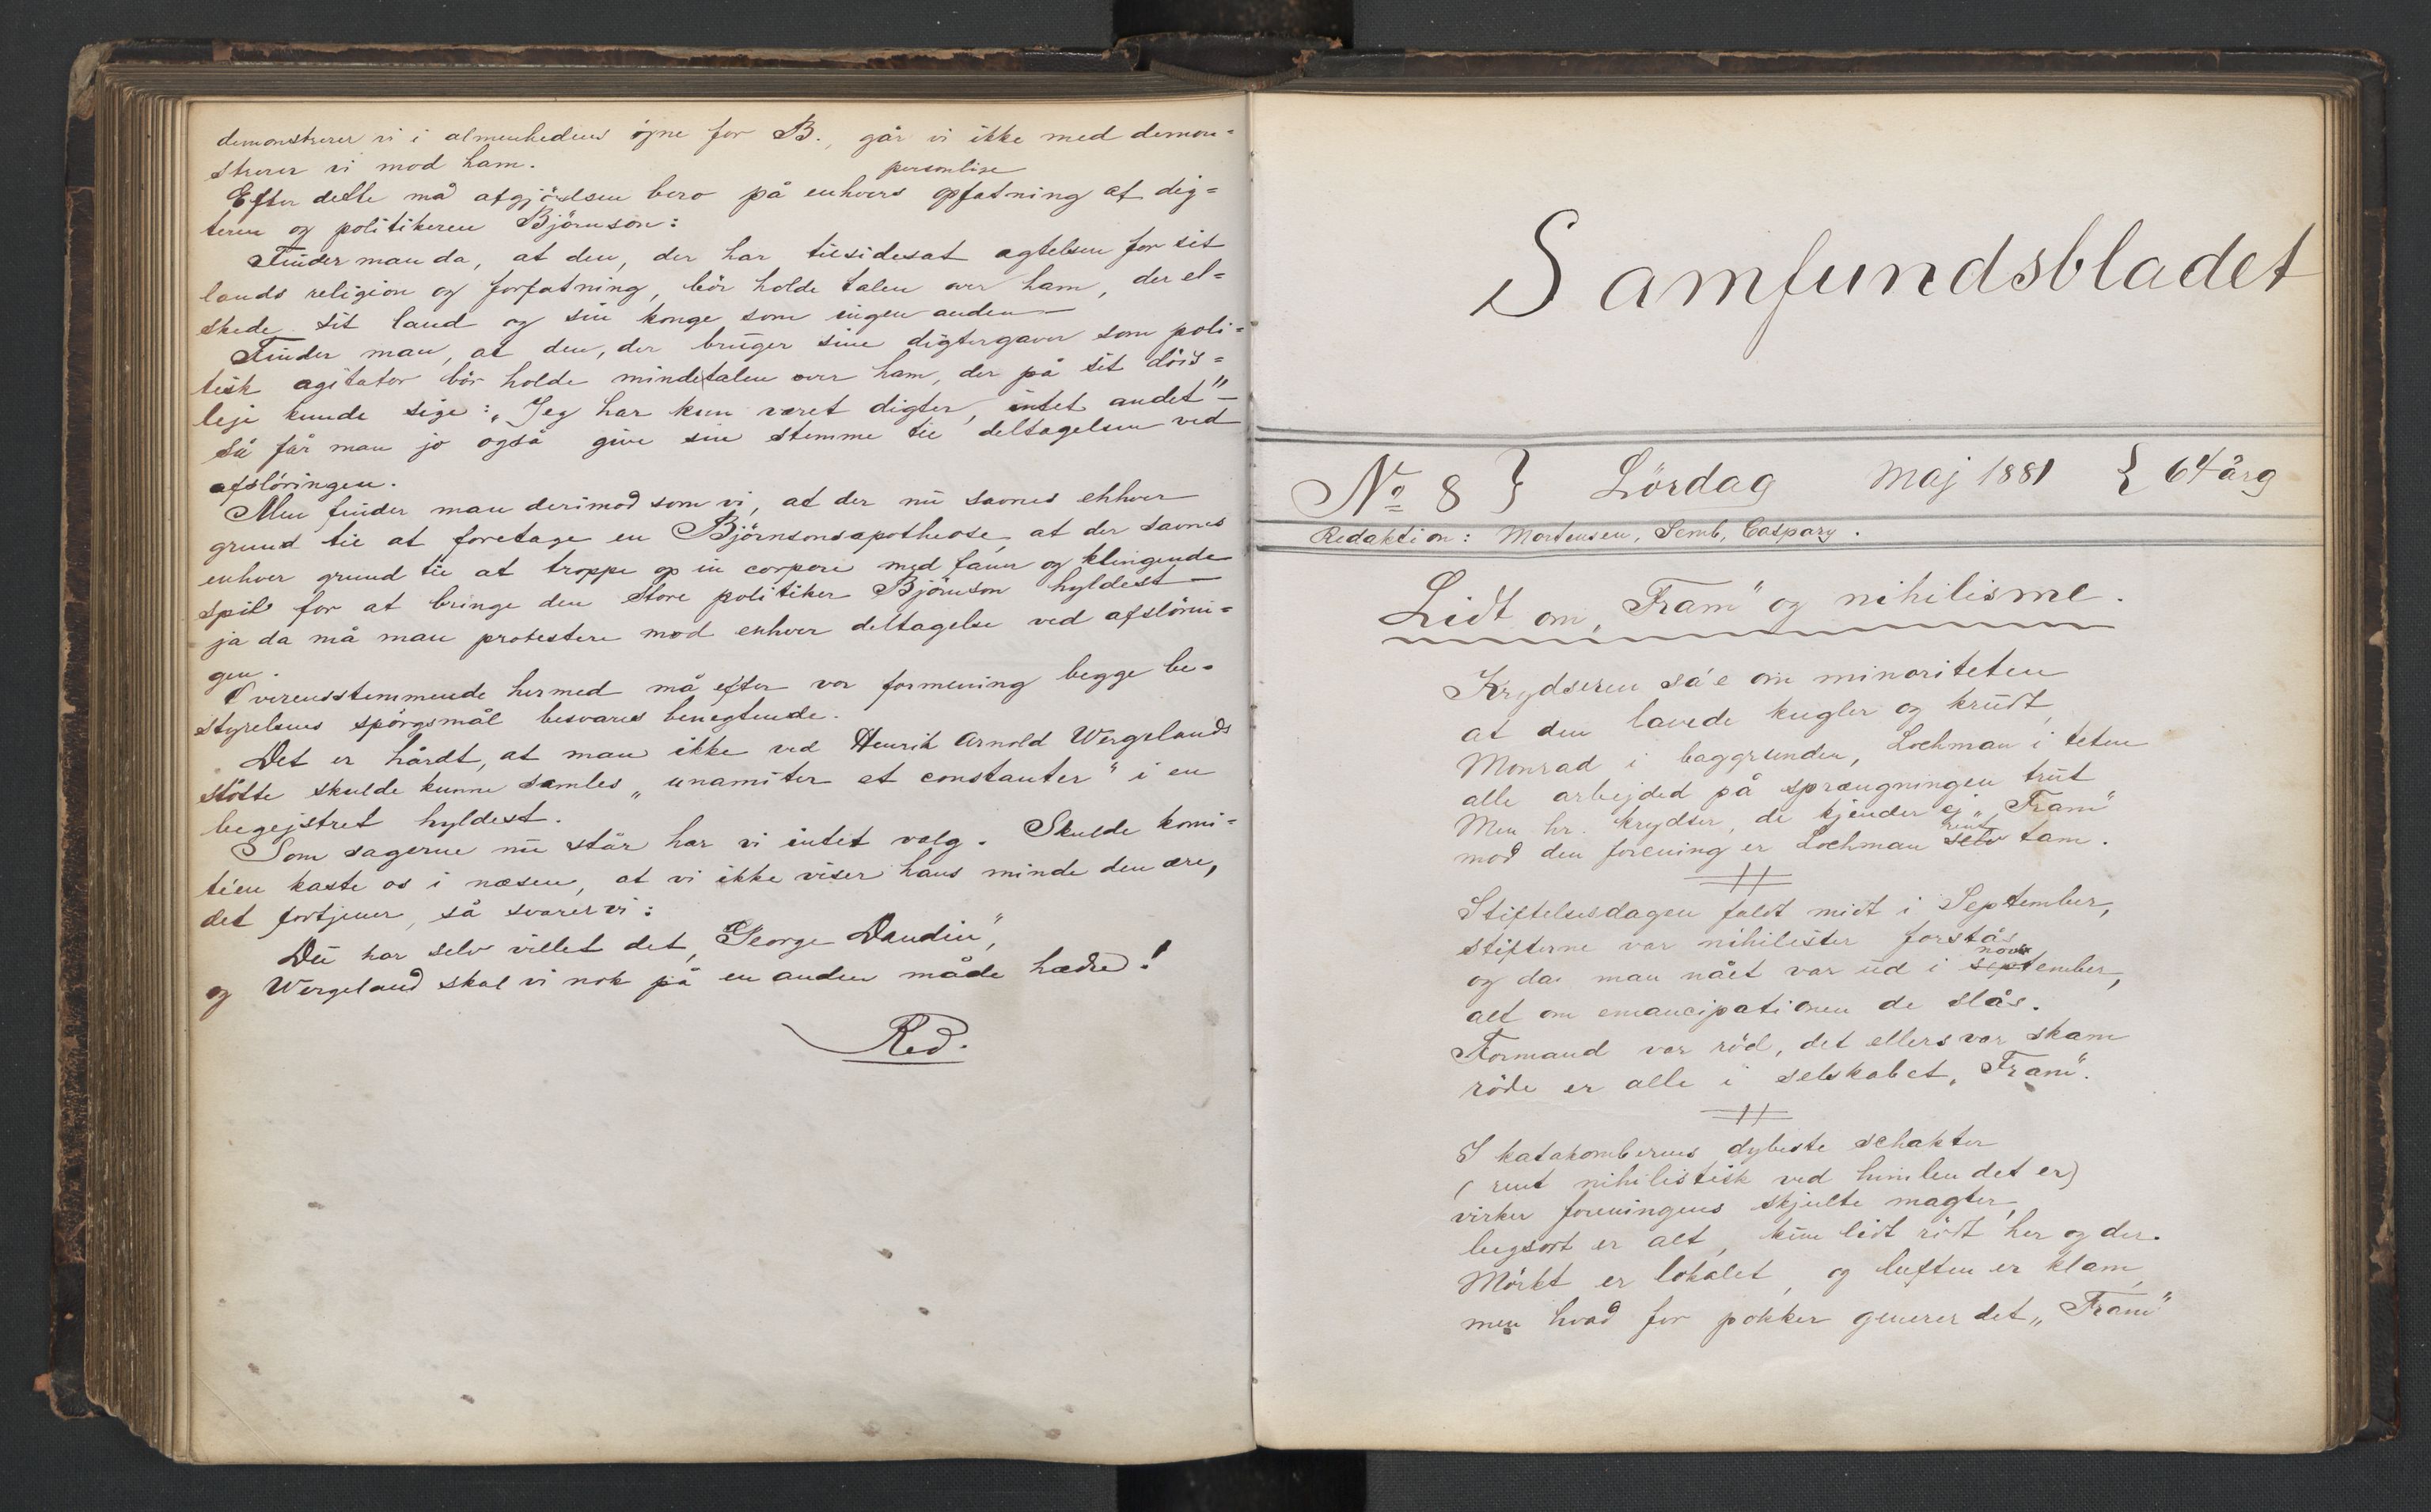 demonstrerer vi i almenhedens øjne for B., går vi ikke med demon=
strerer vi mod ham.
personlige
Efter dette må afgjörelsen bero på enhvers opfatning af dig=
teren og politikeren Björnson:
Finder man da, at den, der har tilsidesat agtelsen for sit
lands religion og forfatning, bör holde talen over ham, der el=
skede sit land og sin konge som ingen anden —
Finder man, at den, der bruger sine digtergaver som poli=
tisk agitator bör holde mindetalen over ham, der på sit döds=
leje kunde sige: „Jeg har kun været digter, intet andet" —
så får man jo også give sin stemme til deltagelsen ved
afslöringen.
Men finder man derimod som vi, at der nu savnes ehhver
grund til at foretage en Björnsonsapotheose, at der savnes
enhver grund til at troppe op in corpore med faner og klingende
spil for at bringe den store politiker Björnson hyldest —
ja da må man protestere mod enhver deltagelse ved afslörin=
gen.
Overensstemmende hermed må efter vor formening begge be=
styrelsens spörgsmål besvares benegtende.
Det er hårdt, at man ikke ved Henrik Arnold Wergelands
stötte skulde kunne samles „unamiter et constanter" i en
begejstret hyldest.
Som sagerne nu står har vi intet valg. Skulde komi=
téen kaste os i næsen, at vi ikke viser hans minde den ære,
det fortjener, så svarer vi:
Du har selv villet det, George Dandin",
og Wergeland skal vi nok på en anden måde hædre!
Red.
Samfundsbladet
No 8 } Lördag Maj 1881 { 64 årg
Redaktion: Mortensen, Semb, Caspary.
Lidt om „Fram" og nihilisme.
Krydseren sa'e om minoriteten
at den lavede kugler og krudt,
Monrad i baggrunden, Lochman i teten
alle arbejded på sprængningen trut
Men hr. krydser, de kjender ej „Fram"
rent
mod den forening er Lochman selv tam.
Stiftelsesdagen faldt midt i September,
stifterne var nihilister forstås
nov
og da man nået var ud i september,
alt om emancipationen de slås.
Formand var röd, det ellers var skam
röde er alle i selskabet „Fram".
I katakombernes dybeste schakter
(rent nihilistisk ved himlen det er)
virker foreningens skjulte magter,
begsort er alt, kun lidt rödt her og der.
Mörkt er lokalet, og luften er klam,
men hvad for pokker generer det „Fram"